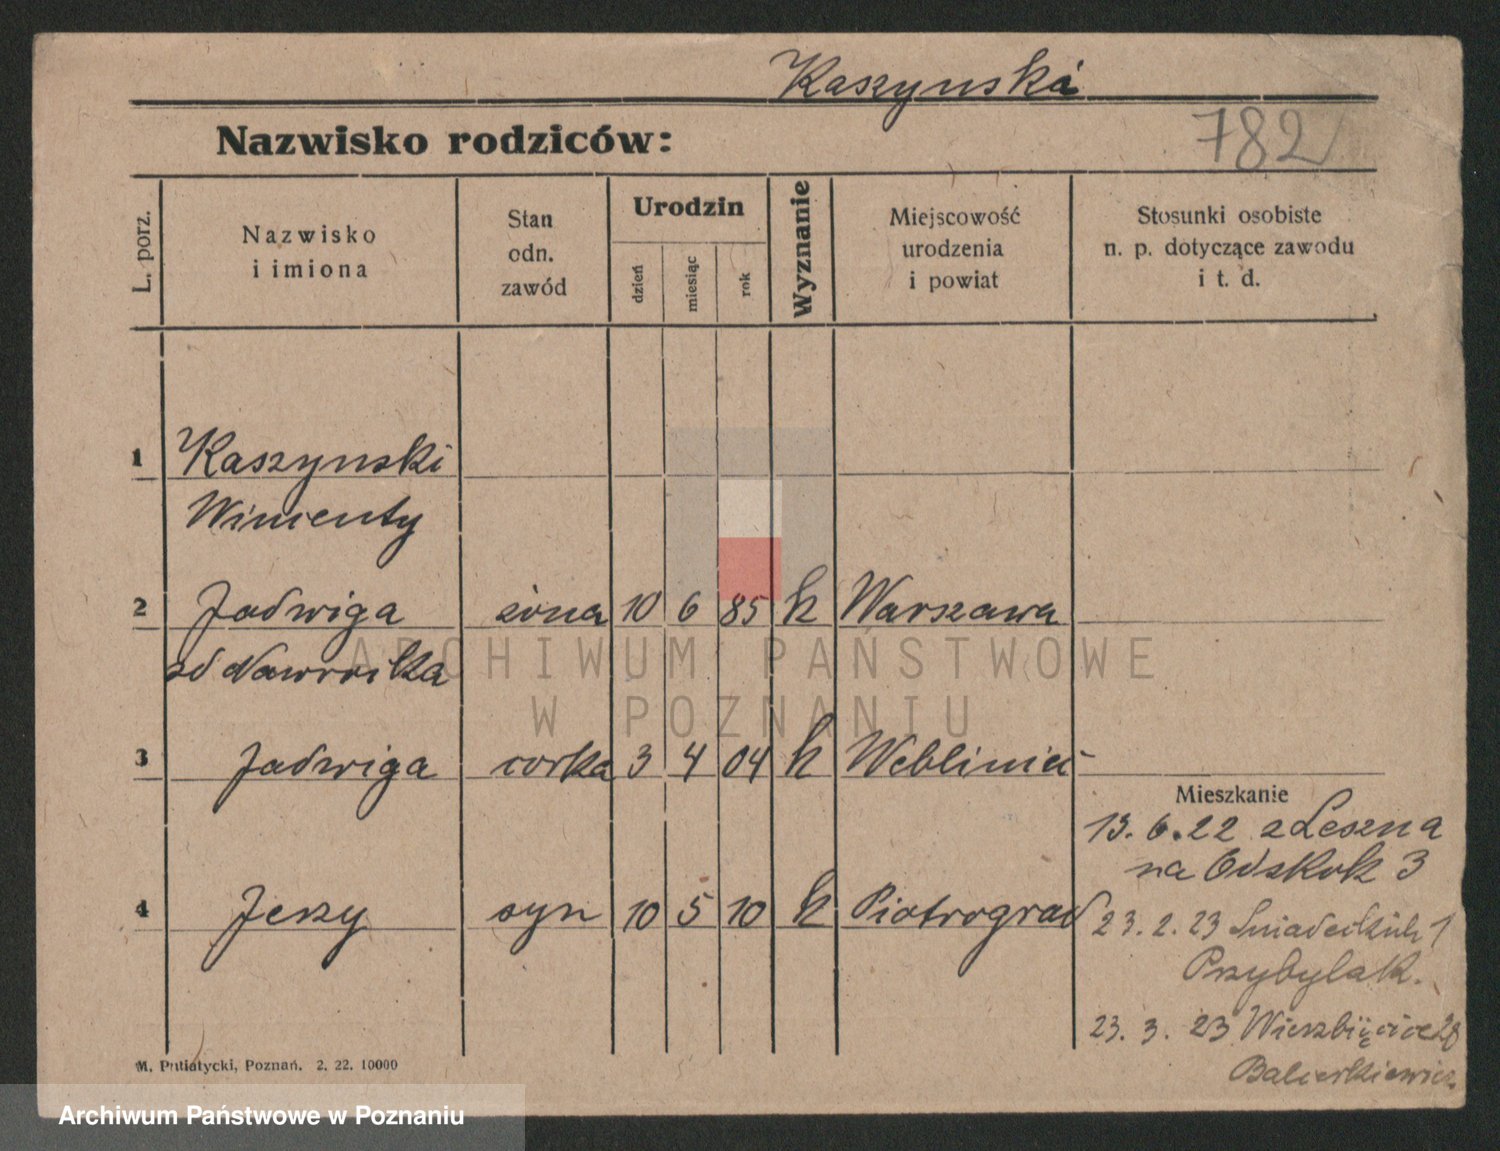 Kaszynska
Nazwisko rodziców:
782
L. porz.
Nazwisko
i imiona
Stan
odn.
zawód
Urodzin
dzień
miesiąc
rok
Wyznanie
Miejscowość
urodzenia
i powiat
Stosunki osobiste
n. p. dotyczące zawodu
i t. d.
1 Kaszynski
Wincenty
2 Jadwiga żona 10 6 85 k Warszawa
zd Nawrocka
3 Jadwiga corka 3 4 04 k
4 Jerzy syn 10 5 10 k Piotrograd
Mieszkanie
13. 6. 22 z Leszna
na 3
23. 2. 23 Sniadeckich 1
Przybylak.
23. 3. 23 Wierzbięcice 28
M. Putiatycki, Poznań. 2. 22. 10000
ARCHIWUM PAŃSTWOWE
W POZNANIU
Archiwum Państwowe w Poznaniu